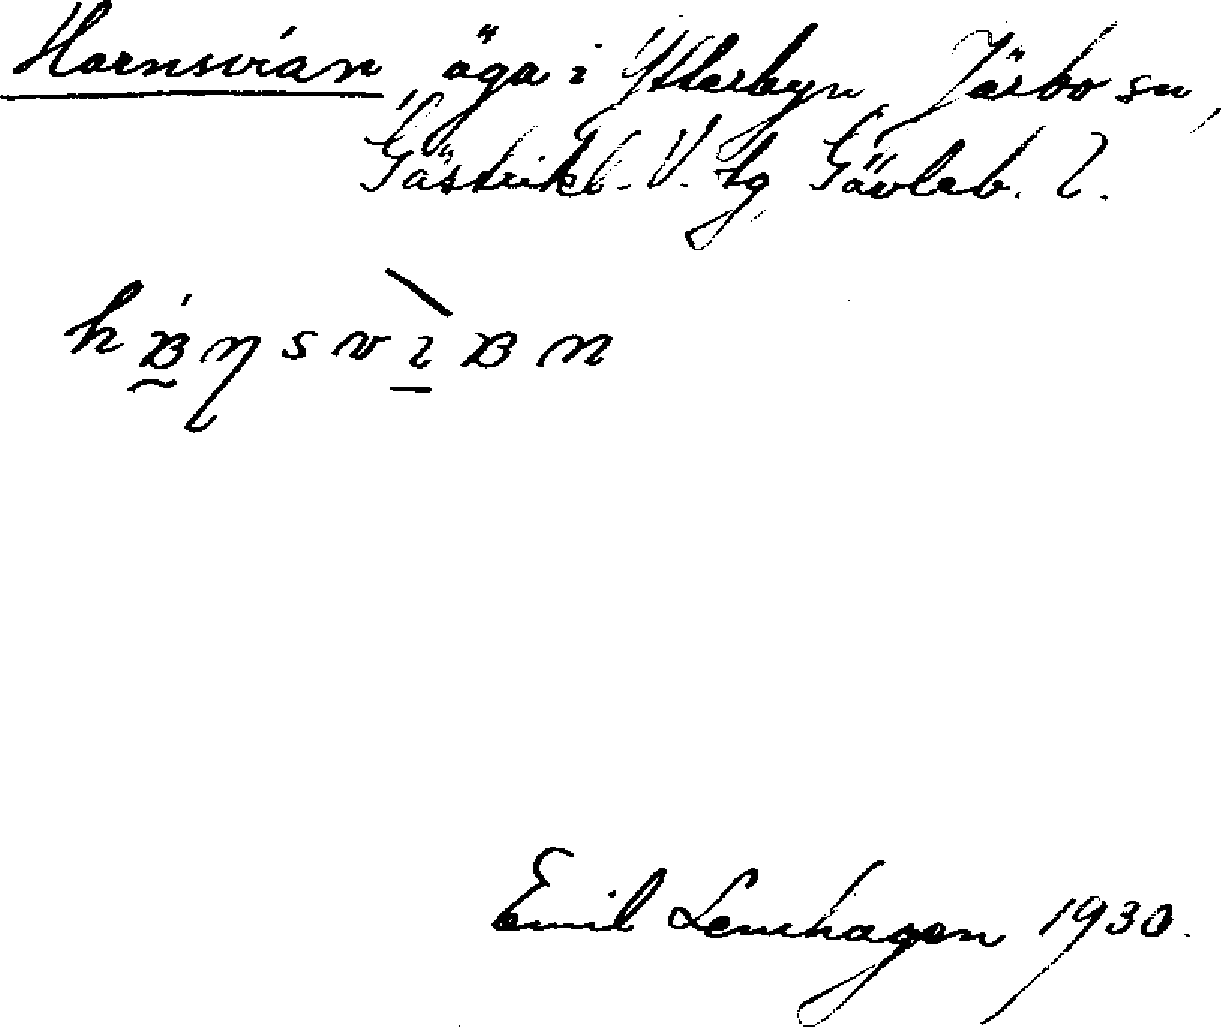 Hornsvian, äga i Ytterbyn, Järbo sn,
Gästrikl. V. tg Gävleb. l.
Emil Lenhagen 1930.